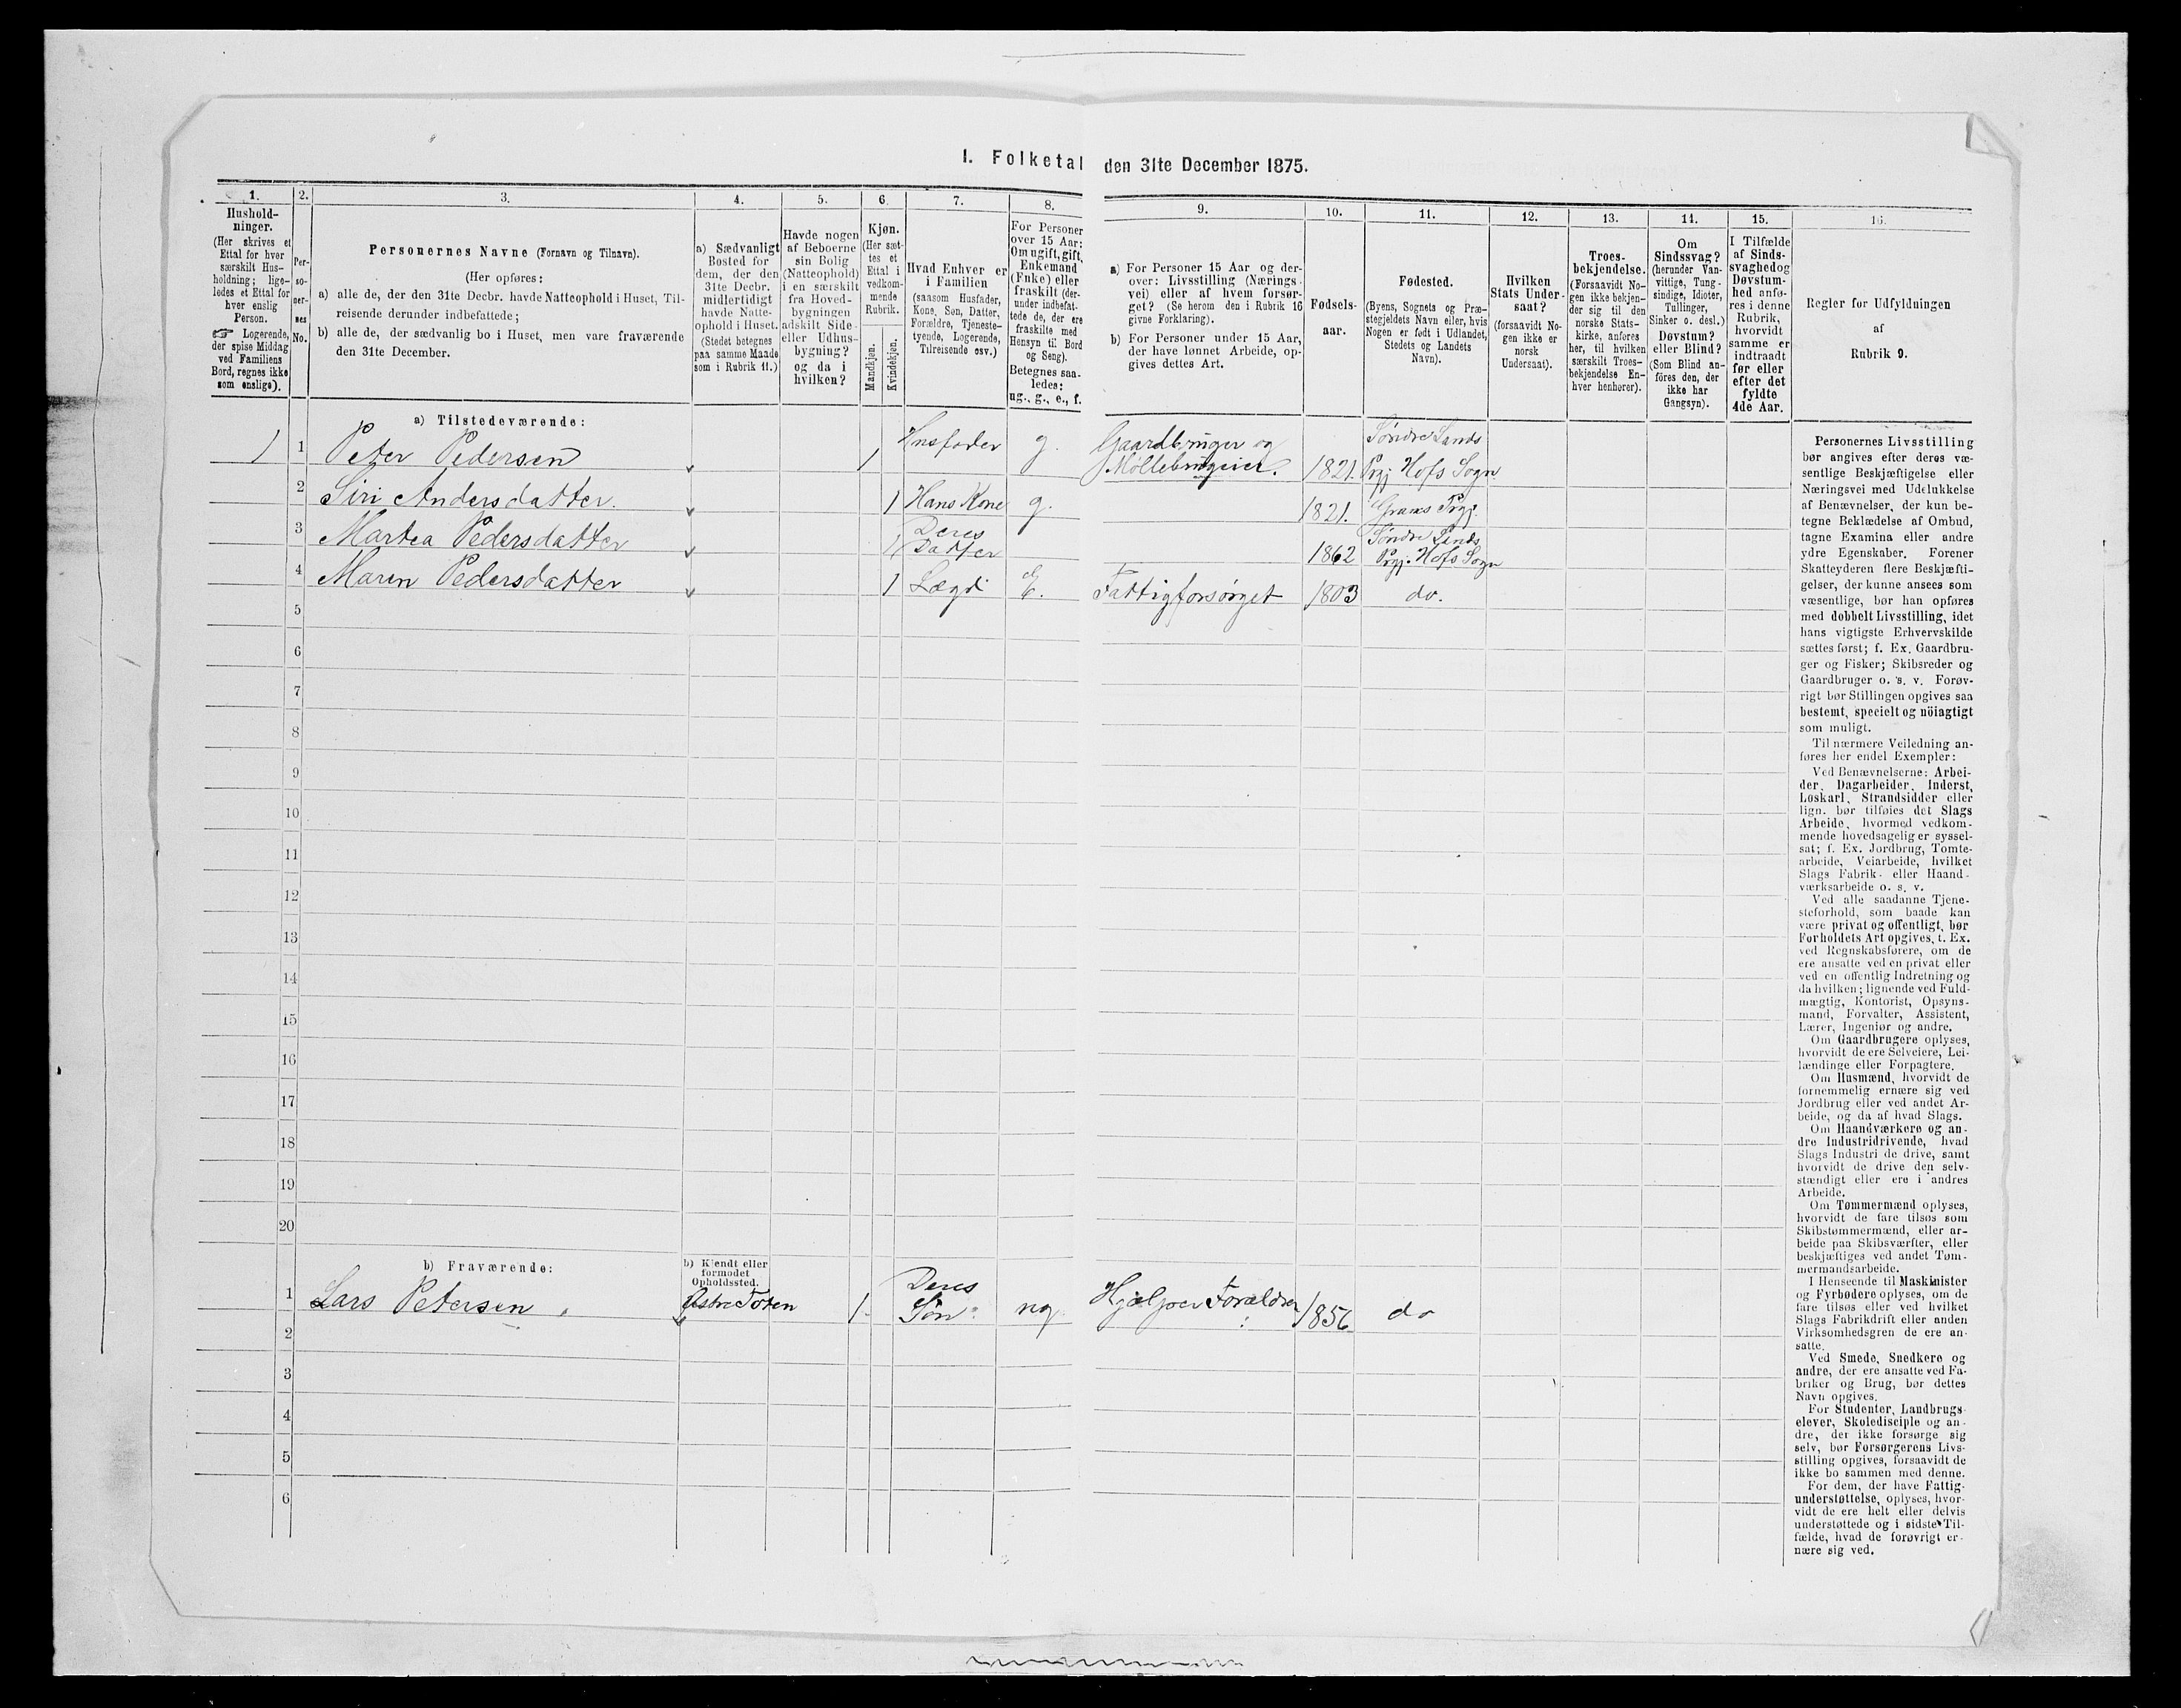 I. Folketal den 31te December 1875.
1.
Hushold-
ninger.
(Her skrives et
Ettal for hver
særskilt Hus-
holdning; lige-
ledes et Ettal for
hver enslig
Person.
☞ Logerende,
der spise Middag
ved Familiens
Bord, regnes ikke
som enslige).
2.
Per-
so-
ner-
nes
No.
3.
Personernes Navne (Fornavn og Tilnavn).
(Her opføres:
a) alle de, der den 31te Decbr. havde Natteophold i Huset, Til-
reisende derunder indbefattede;
b) alle de, der sædvanlig bo i Huset, men vare fraværende
den 31te December.
4.
a) Sædvanligt
Bosted for
dem, der den
31te Decbr.
midlertidigt
havde Natte-
ophold i Huset.
(Stedet betegnes
paa samme Maade
som i Rubrik 11.)
5.
Havde nogen
af Beboerne
sin Bolig
(Natteophold)
i en særskilt
fra Hoved-
bygningen
adskilt Side-
eller Udhus-
bygning?
og da i
hvilken?
6.
Kjøn.
(Her sæt-
tes et
Ettal i
vedkom-
mende
Rubrik.
Mandkjøn.
Kvindekjøn.
7.
Hvad Enhver er
i Familien
(saasom Husfader,
Kone, Søn, Datter,
Forældre, Tjeneste-
tyende, Logerende,
Tilreisende osv.)
8.
For Personer
over 15 Aar:
Om ugift, gift,
Enkemand
(Enke) eller
fraskilt (der-
under indbefat-
tede de, der ere
fraskilte med
Hensyn til Bord
og Seng).
Betegnes saa-
ledes:
ug., g., e., f.
9.
a) For Personer 15 Aar og der-
over: Livsstilling (Nærings-
vei) eller af hvem forsør-
get? (Se herom den i Rubrik 16
givne Forklaring).
b) For Personer under 15 Aar,
der have lønnet Arbeide, op-
gives dettes Art.
10.
Fødsels-
aar.
11.
Fødested.
(Byens, Sognets og Præ-
stegjeldets Navn eller, hvis
Nogen er født i Udlandet,
Stedets og Landets
Navn).
12.
Hvilken
Stats Under-
saat?
(forsaavidt No-
gen ikke er
norsk
Undersaat).
13.
Troes-
bekjendelse.
(Forsaavidt No-
gen ikke bekjen-
der sig til den
norske Stats-
kirke, anføres
her, til hvilken
særskilt Troes-
bekjendelse En-
hver henhører).
14.
Om
Sindssvag?
(herunder Van-
vittige, Tung-
sindige, Idioter,
Tullinger,
Sinker o. desl.)
Døvstum?
eller Blind?
(Som Blind an-
føres den, der
ikke har
Gangsyn).
15.
I Tilfælde
af Sinds-
svaghed og
Døvstum-
hed anfø-
res i denne
Rubrik,
hvorvidt
samme er
indtraadt
før eller
efter det
fyldte
4de Aar.
16.
Regler for Udfyldningen
af
Rubrik 9.
a) Tilstedeværende:
1 1 Peter Pedersen 1 Husfader g. Gaardbruger og Møllebrugeier. 1821. Søndre Lands Prgj. Hofs Sogn.
2 Siri Andersdatter. 1 Hans Kone g. 1821. Grans Prgj.
3 Martea Pedersdatter 1 Deres Datter 1862 Søndre Lands Prgj. Hofs Sogn
4 Maren Pedersdatter 1 Lægd E. Fattigforsørget 1803 do.
5
6
7
8
9
10
11
12
13
14
15
16
17
18
19
20
b) Fraværende:
b) Kjendt eller
formodet
Opholdssted.
1 Lars Petersen Østre Toten 1 Deres Søn ug. Hjælper Forældre 1856 do
2
3
4
5
6
Personernes Livsstilling
bør angives efter deres væ-
sentlige Beskjæftigelse eller
Næringsvei med Udelukkelse
af Benævnelser, der kun be-
tegne Beklædelse af Ombud,
tagne Examina eller andre
ydre Egenskaber. Forener
Skatteyderen flere Beskjæfti-
gelser, der kunne ansees som
væsentlige, bør han opføres
med dobbelt Livsstilling, idet
hans vigtigste Erhvervskilde
sættes først; f. Ex. Gaardbru-
ger og Fisker; Skibsreder og
Gaardbruger o. s. v. Forøv-
rigt bør Stillingen opgives saa
bestemt, specielt og nöiagtigt
som muligt.
Til nærmere Veiledning an-
føres her endel Exempler:
Ved Benævnelserne: Arbei-
der, Dagarbeider, Inderst,
Løskarl, Strandsidder eller
lign. bør tilføies det Slags
Arbeide, hvormed vedkom-
mende hovedsagelig er syssel-
sat; f. Ex. Jordbrug, Tomte-
arbeide, Veiarbeide, hvilket
Slags Fabrik- eller Haand-
værksarbeide o. s. v.
Ved alle saadanne Tjene-
steforhold, som baade kan
være privat og offentligt, bør
Forholdets Art opgives, t. Ex.
ved Regnskabsførere, om de
ere ansatte ved en privat eller
ved en offentlig Indretning og
da hvilken; lignende ved Fuld-
mægtig, Kontorist, Opsyns-
mand, Forvalter, Assistent,
Lærer, Ingeniør og andre.
Om Gaardbrugere oplyses,
hvorvidt de ere Selveiere, Lei-
lændinge eller Forpagtere.
Om Husmænd, hvorvidt de
fornemmelig ernære sig ved
Jordbrug eller ved andet Ar-
beide, og da af hvad Slags.
Om Haandværkere og an-
dre Industridrivende, hvad
Slags Industri de drive, samt
hvorvidt de drive den selv-
stændigt eller ere i andres
Arbeide.
Om Tømmermænd oplyses,
hvorvidt de fare tilsøs som
Skibstømmermænd, eller ar-
beide paa Skibsværfter, eller
beskjæftiges ved andet Tøm-
mermandsarbeide.
I Henseende til Maskinister
og Fyrbødere oplyses, om de
fare tilsøs eller ved hvilket
Slags Fabrikdrift eller anden
Virksomhedsgren de ere an-
satte.
Ved Smede, Snedkere og
andre, der ere ansatte ved Fa-
briker og Brug, bør dettes
Navn opgives.
For Studenter, Landbrugs-
elever, Skoledisciple og an-
dre, der ikke forsørge sig
selv, bør Forsørgerens Livs-
stilling opgives, forsaavidt de
ikke bo sammen med denne.
For dem, der have Fattig-
understøttelse, oplyses, hvor-
vidt de ere helt eller delvis
understøttede og i sidste Til-
fælde, hvad de forøvrigt er-
nære sig ved.